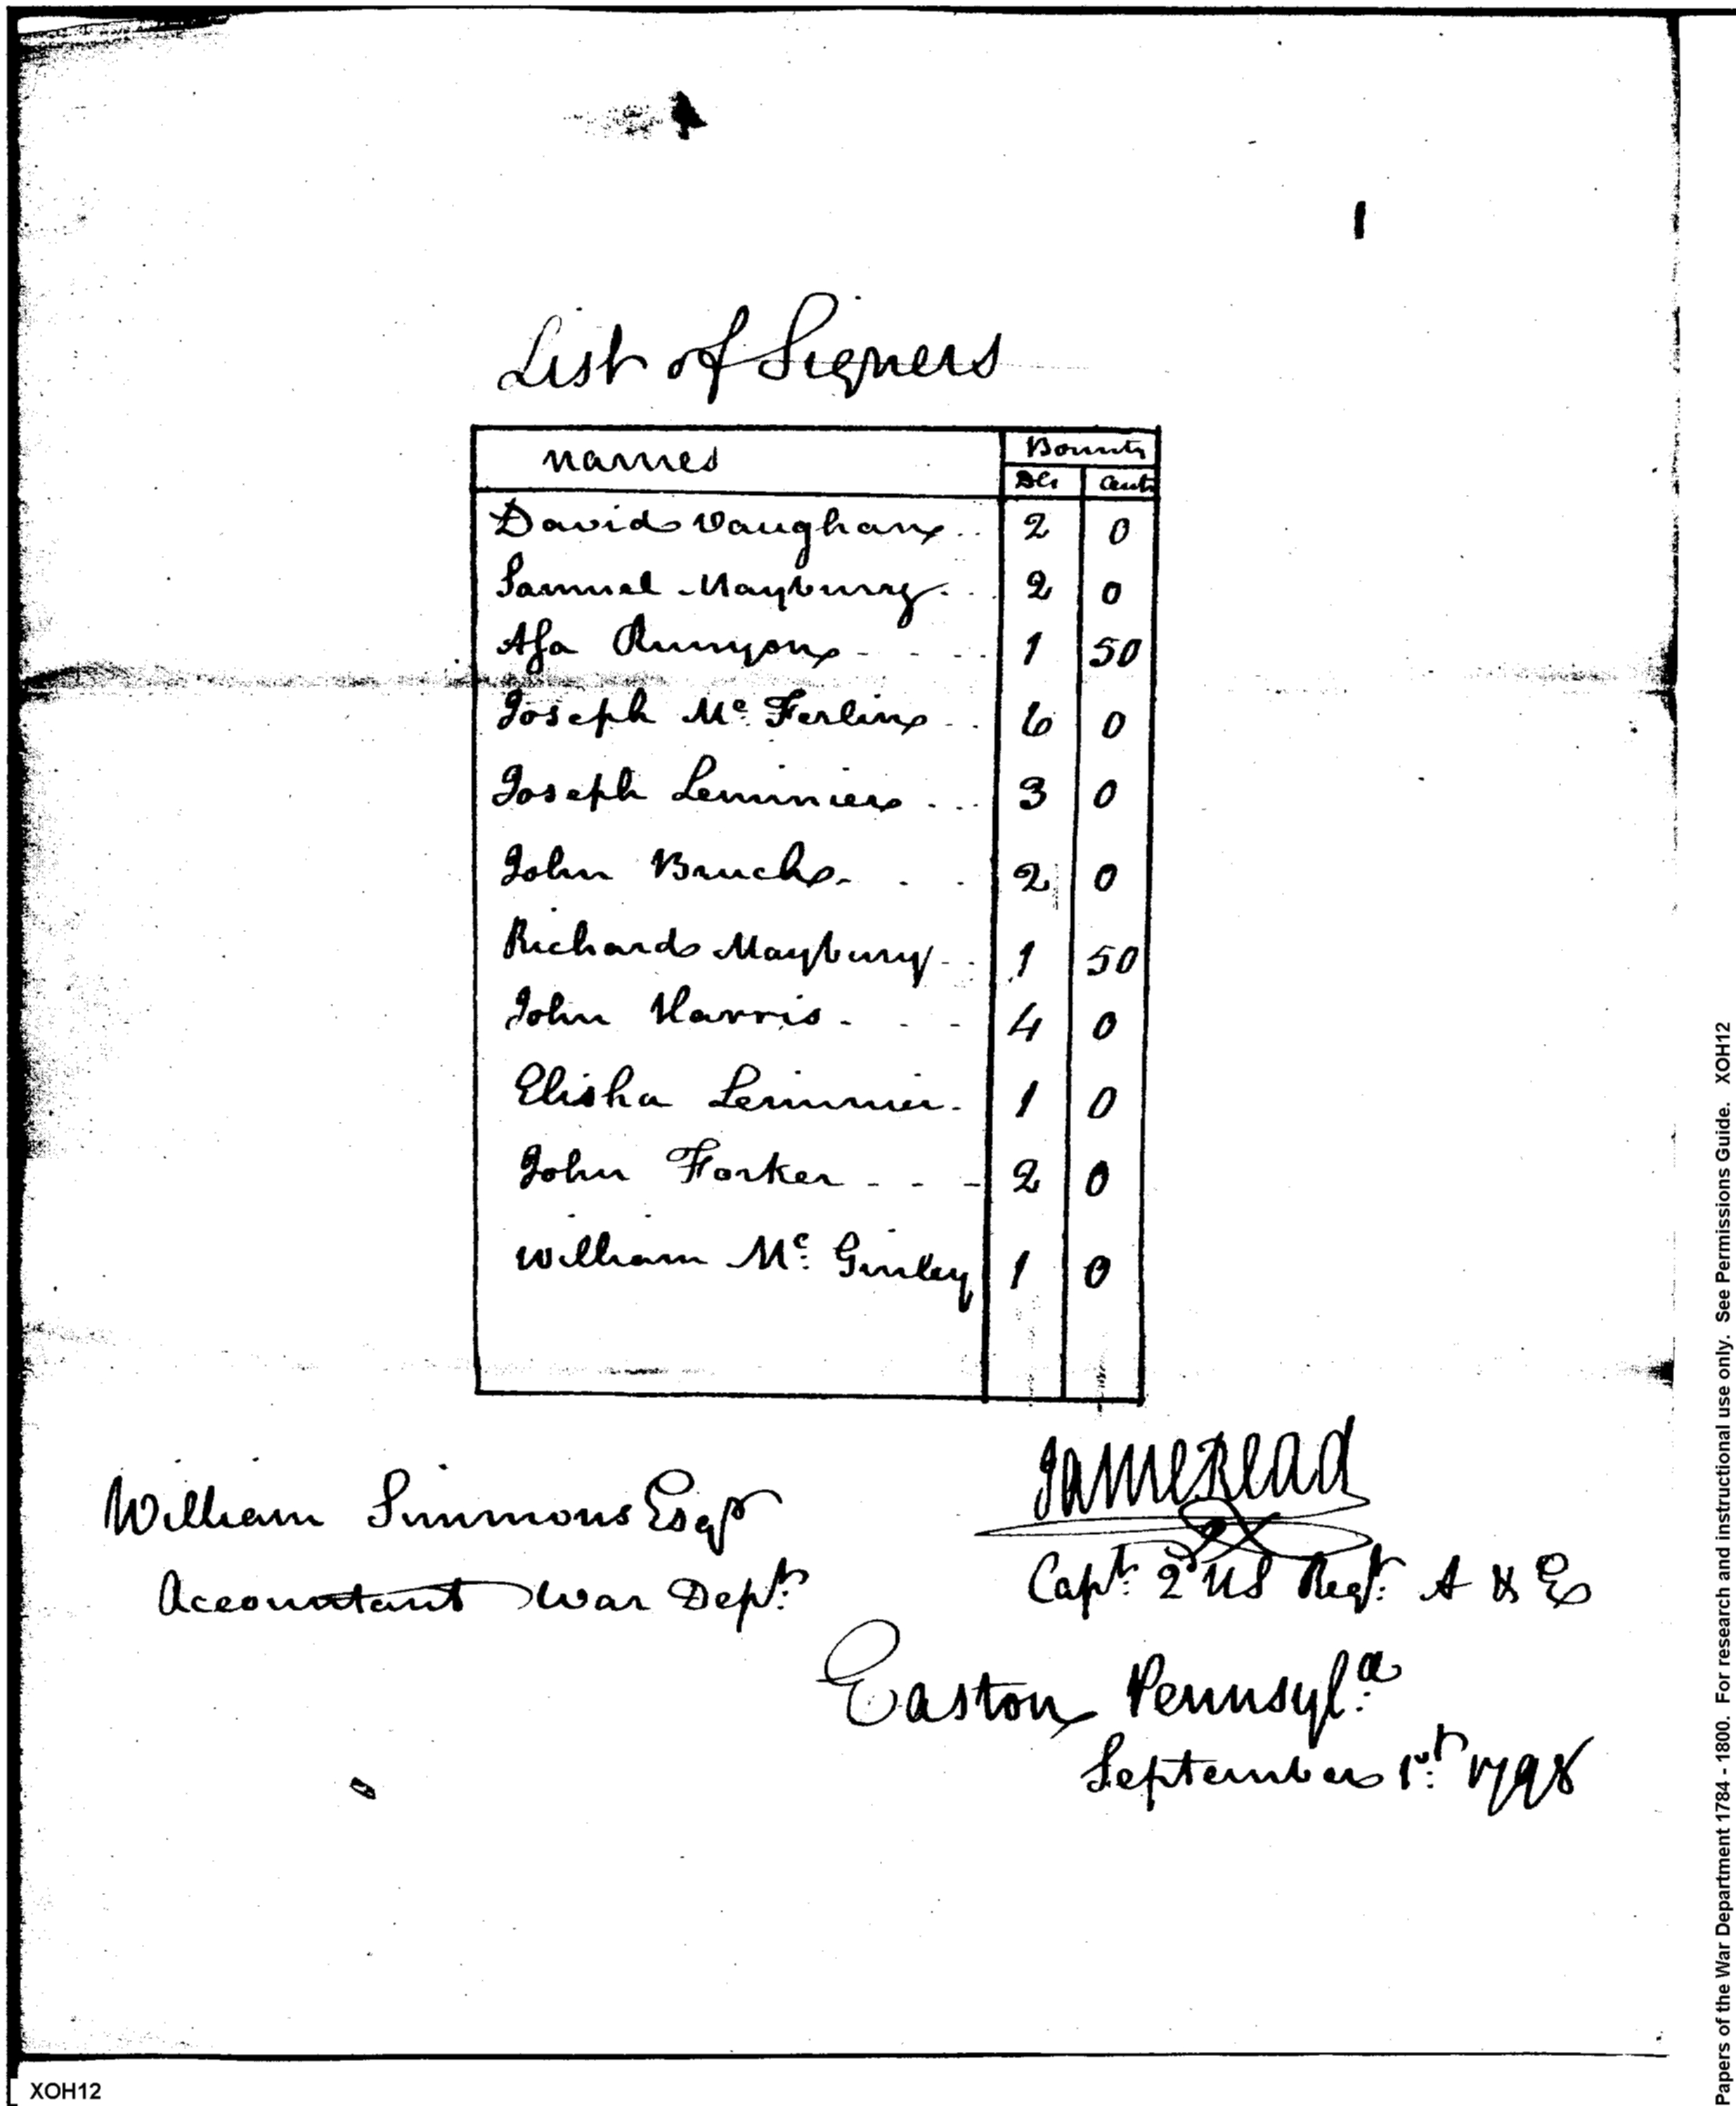 List of Signers
names Bounty
Dls Cents
David Vaughan .. 2 0
Samuel Mayburry . . 2 0
Asa Runyon - - - - 1 50
Joseph Mc. Ferlin - . 6 0
Joseph Lemmier . . . 3 0
John Bruch - . . 2 0
Richard Maybury - . 1 50
John Harris - - - 4 0
Elisha Lemmier - 1 0
John Forker - - - 2 0
William Mc. Ginley 1 0
James Read
William Simmons Esqr
Capt. 2d US Regt. A & E
Accountant War Dept.
Easton Pennsyl.a
September 1st. 1798
XOH12
Papers of the War Department 1784 - 1800. For research and instructional use only. See Permissions Guide. XOH12